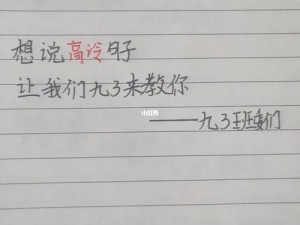 想说高冷句子
让我们九3来教你
小红书
——九3班委们